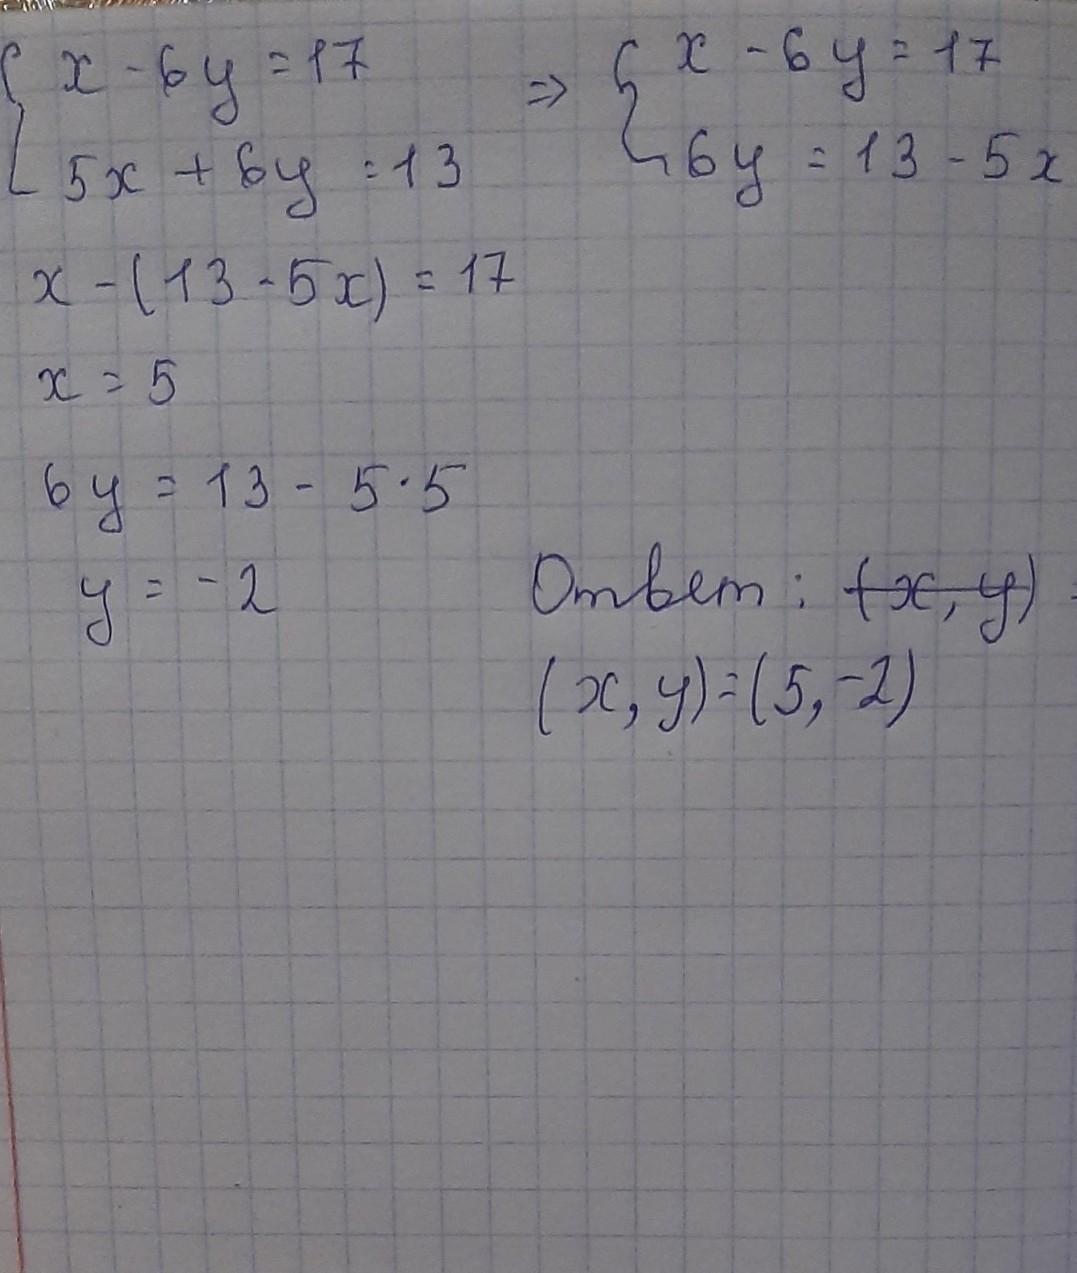 x - 6y = 17 ⇒ x - 6y = 17
5x + 6y = 13 6y = 13 - 5x
x - (13 - 5x) = 17
x = 5
6y = 13 - 5·5
y = -2
Ответ: (x, y) =
(x, y) = (5, -2)